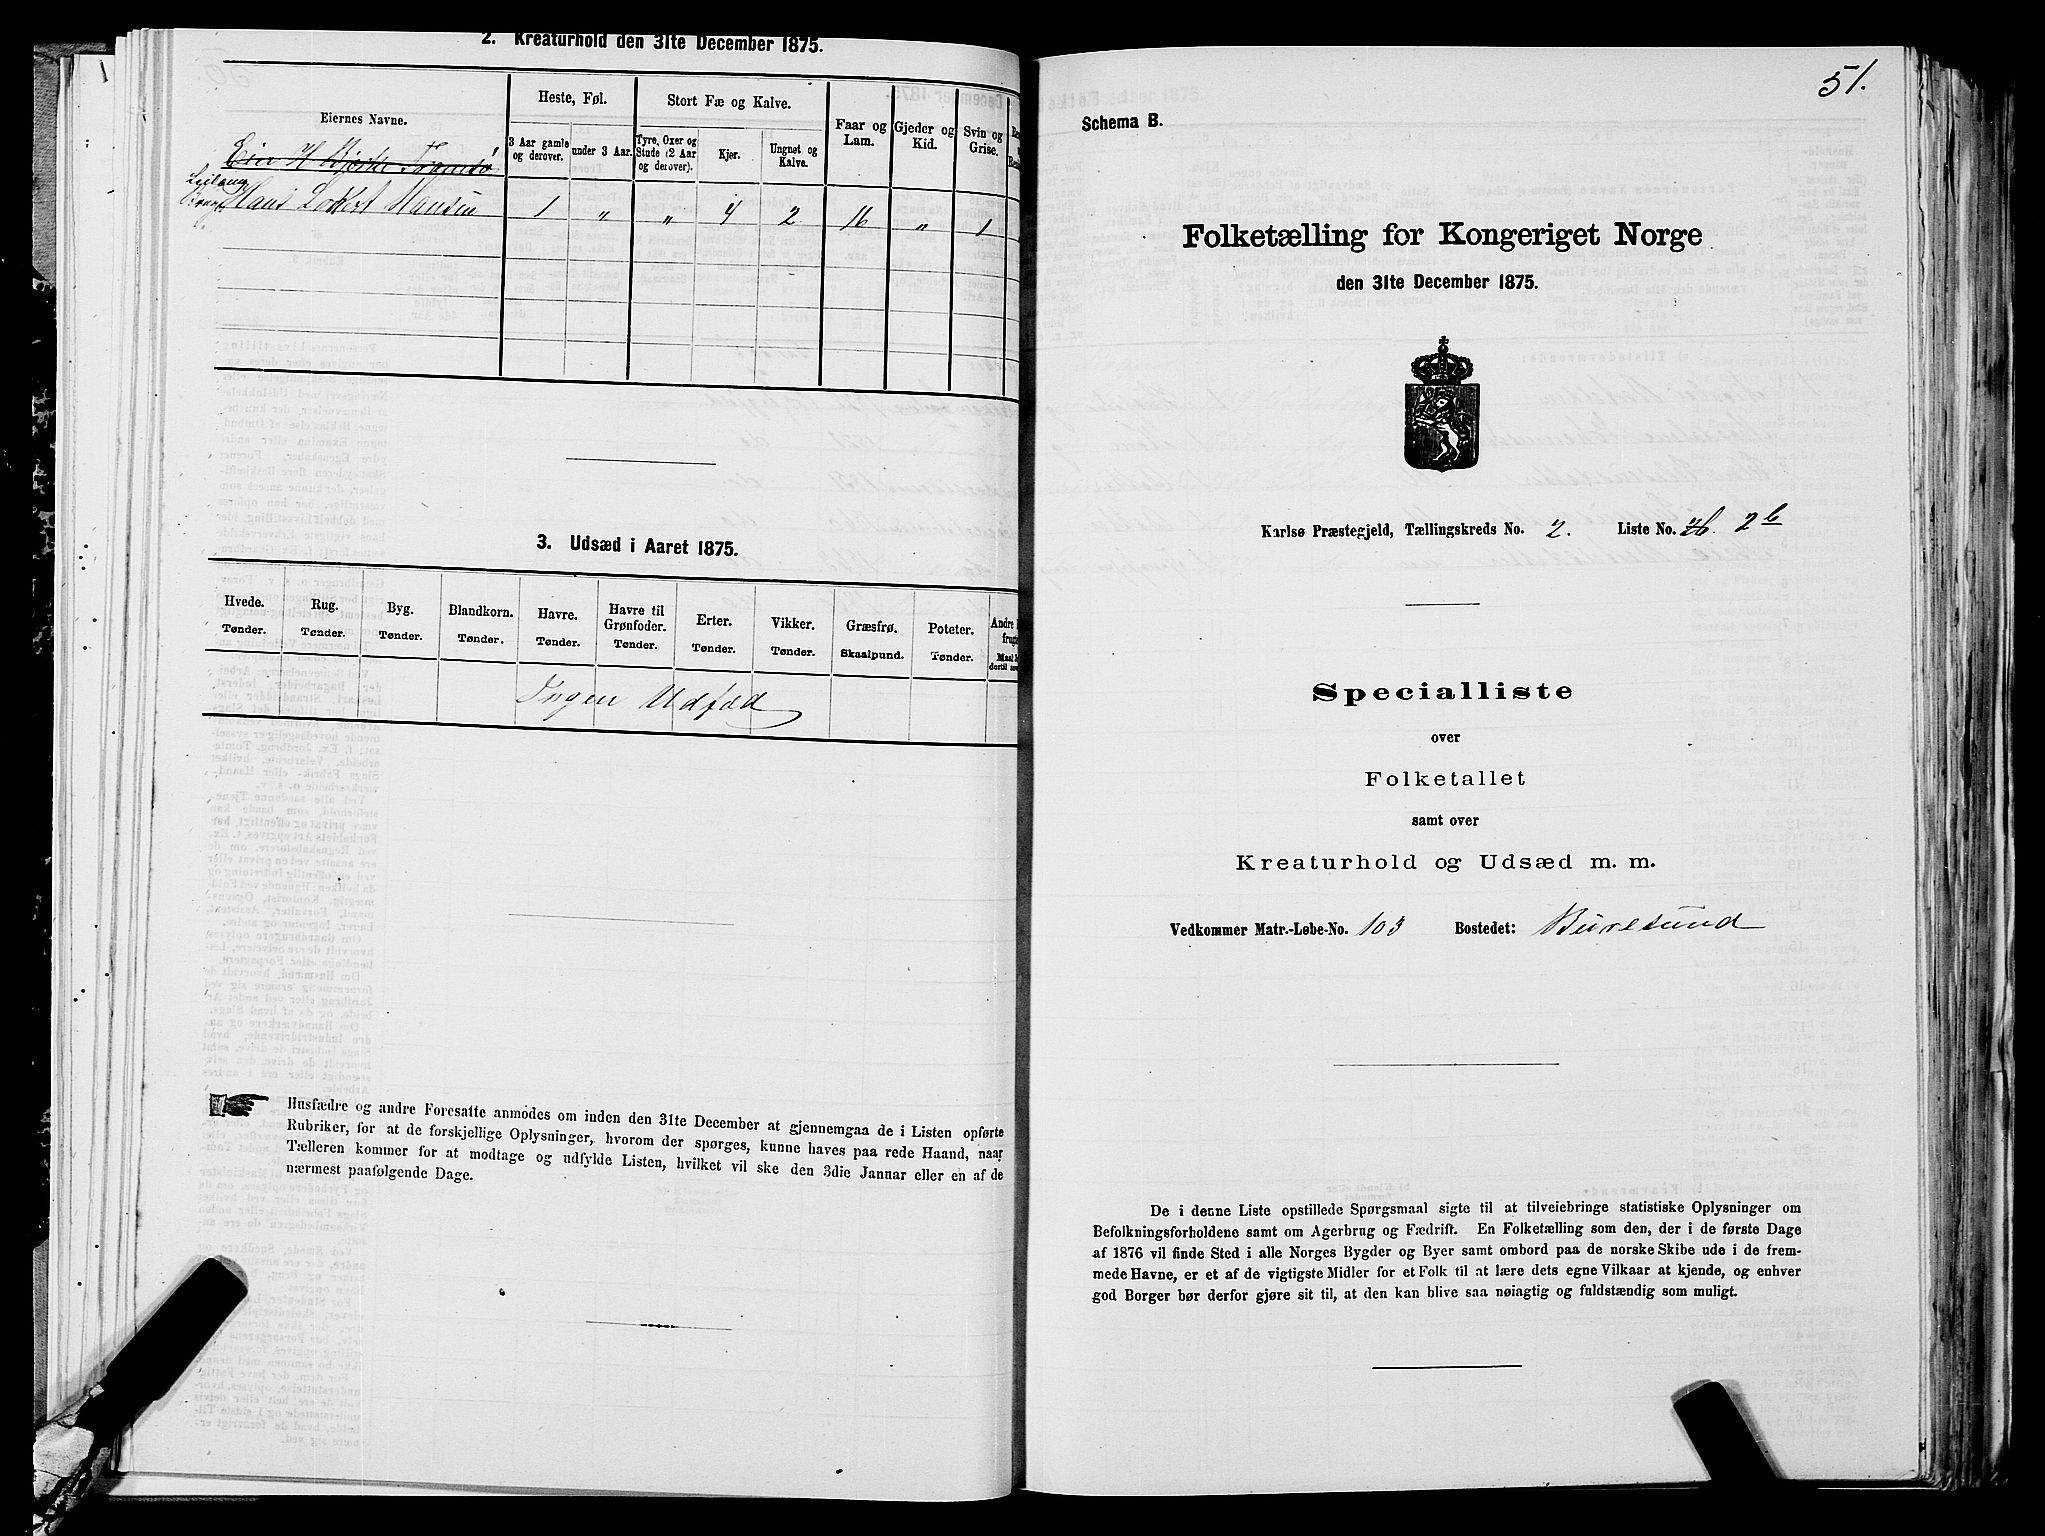 2. Kreaturhold den 31te December 1875.
Eiernes Navne.
Heste, Føl.
Stort Fæ og Kalve.
Faar og Lam.
Gjeder og Kid.
Svin og Grise.
3 Aar gamle og derover.
under 3 Aar.
Tyre, Oxer og Stude (2 Aar og derover).
Kjer.
Ungnøt og Kalve.
Hans Lockert Hansen 1 " " 4 2 16 " 1
3. Udsæd i Aaret 1875.
Hvede. Rug. Byg. Blandkorn. Havre. Havre til Grønfoder. Erter. Vikker. Græsfrø. Poteter.
Tønder. Tønder. Tønder. Tønder. Tønder. Tønder. Tønder. Tønder. Skaalpund. Tønder.
Ingen Udsæd
Husfædre og andre Foresatte anmodes om inden den 31te December at gjennemgaa de i Listen opførte
Rubriker, for at de forskjellige Oplysninger, hvorom der spørges, kunne haves paa rede Haand, naar
Tælleren kommer for at modtage og udfylde Listen, hvilket vil ske den 3die Januar eller en af de
nærmest paafølgende Dage.
51.
Schema B.
Folketælling for Kongeriget Norge
den 31te December 1875.
Karlsø Præstegjeld, Tællingskreds No. 2. Liste No. 2b
Specialliste
over
Folketallet
samt over
Kreaturhold og Udsæd m. m.
Vedkommer Matr.-Løbe-No. 103 Bostedet: Buresund
De i denne Liste opstillede Spørgsmaal sigte til at tilveiebringe statistiske Oplysninger om
Befolkningsforholdene samt om Agerbrug og Fædrift. En Folketælling som den, der i de første Dage
af 1876 vil finde Sted i alle Norges Bygder og Byer samt ombord paa de norske Skibe ude i de frem-
mede Havne, er et af de vigtigste Midler for et Folk til at lære dets egne Vilkaar at kjende, og enhver
god Borger bør derfor gjøre sit til, at den kan blive saa nøiagtig og fuldstændig som muligt.